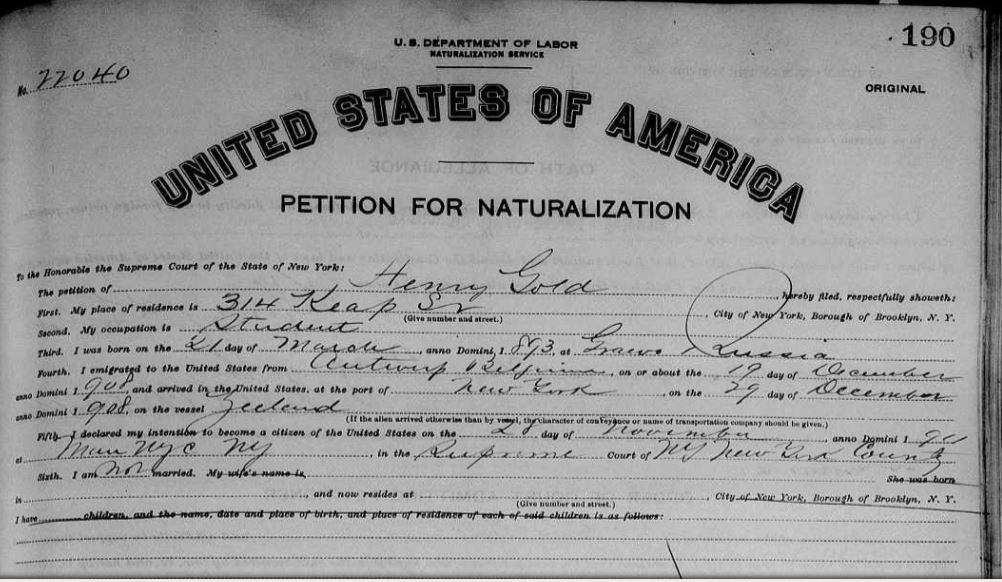 190
U. S. DEPARTMENT OF LABOR
NATURALIZATION SERVICE
No. 22040
ORIGINAL
UNITED STATES OF AMERICA
PETITION FOR NATURALIZATION
To the Honorable the Supreme Court of the State of New York:
The petition of Henry Gold hereby filed, respectfully showeth:
First. My place of residence is 314 Keap St , City of New York, Borough of Brooklyn, N. Y.
(Give number and street.)
Second. My occupation is Student
Third. I was born on the 21 day of March , anno Domini, 1 893, at Russia
Fourth. I emigrated to the United States from Antwerp Belgium , on or about the 19 day of December
anno Domini 1 908, and arrived in the United States, at the port of New York , on the 29 day of December
anno Domini 1 908, on the vessel Zeeland
(If the alien arrived otherwise than by vessel, the character of conveyance or name of transportation company should be given.)
Fifth. I declared my intention to become a citizen of the United States on the day of November , anno Domini 1
at NYC NY , in the Supreme Court of NY New York County
Sixth. I am not married. My wife's name is She was born
in , and now resides at , City of New York, Borough of Brooklyn, N. Y.
(Give number and street.)
I have children, and the name, date and place of birth, and place of residence of each of said children is as follows: